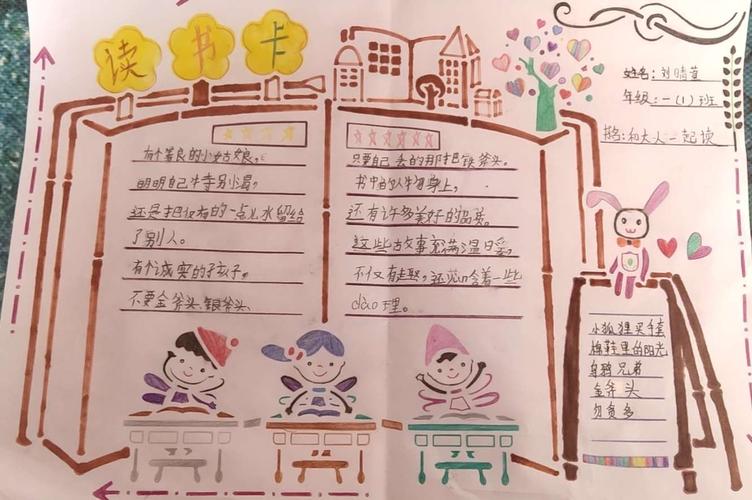 读书卡
姓名:刘晴萱
年级:一(1)班
书名:和大人一起读
有个善良的小姑娘,
明明自己特别渴,
还是把仅有的一点儿水留给
了别人。
有个诚实的孩子,
不要金斧头、银斧头,
只要自己丢的那把铁斧头。
书中的人物身上,
还有许多美好的品质。
这些故事充满温暖,
不仅有趣,还包含着一些
dào理。
小狐狸买手套
棉鞋里的阳光
乌鸦兄弟
金斧头
勿贪多